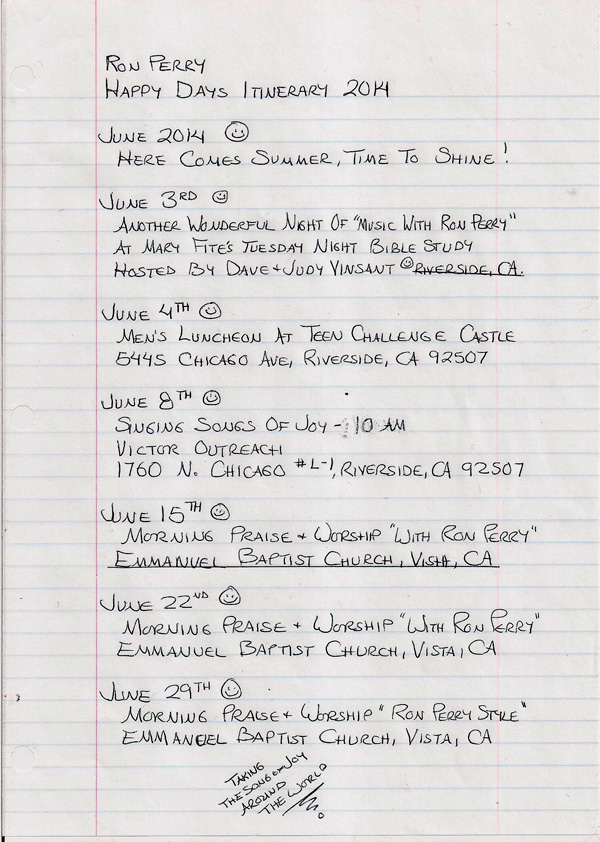 Ron Perry
Happy Days Itinerary 2014
June 2014 ☺
Here Comes Summer, Time To Shine!
June 3RD ☺
Another Wonderful Night Of "Music With Ron Perry"
At Mary Fite's Tuesday Night Bible Study
Hosted By Dave + Judy Vinsant ☺ Riverside, CA.
June 4TH ☺
Men's Luncheon At Teen Challenge Castle
5445 Chicago Ave, Riverside, CA 92507
June 8TH ☺
Singing Songs Of Joy - 10 AM
Victor Outreach
1760 N. Chicago #L-1, Riverside, CA 92507
June 15TH ☺
Morning Praise + Worship "With Ron Perry"
Emmanuel Baptist Church, Vista, CA
June 22ND ☺
Morning Praise + Worship "With Ron Perry"
Emmanuel Baptist Church, Vista, CA
June 29TH ☺
Morning Praise + Worship "Ron Perry Style"
Emmanuel Baptist Church, Vista, CA
Taking
The Song of Joy
Around
The World